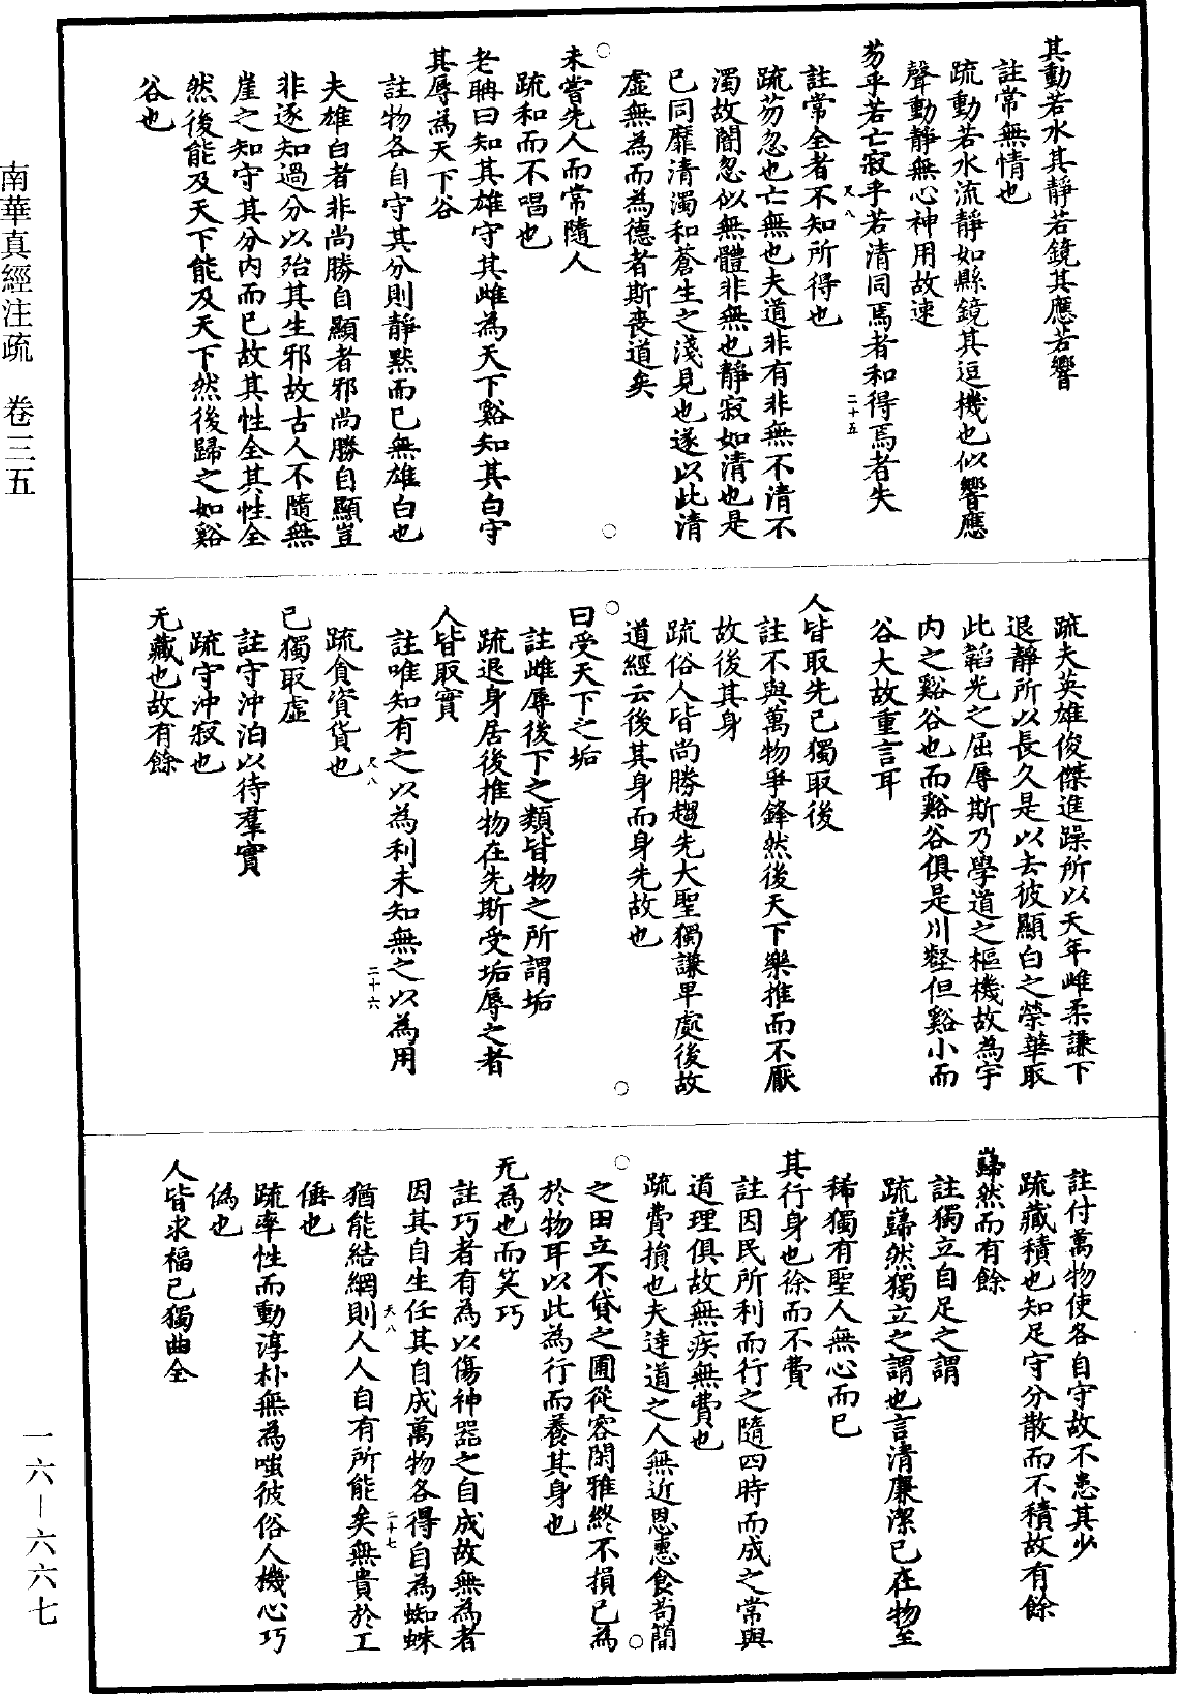 南華真經注疏 卷三五
一六—六六七
其動若水其靜若鏡其應若響
註常無情也
疏動若水流靜如縣鏡其逗機也似響應
聲動靜無心神用故速
芴乎若亡寂乎若清同焉者和得焉者失
註常全者不知所得也
疏芴忽也亡無也夫道非有非無不清不
濁故闇忽似無體非無也靜寂如清也是
已同靡清濁和蒼生之淺見也遂以此清
虛無為而為德者斯喪道矣
未嘗先人而常隨人
疏和而不唱也
老聃曰知其雄守其雌為天下谿知其白守
其辱為天下谷
註物各自守其分則靜默而已無雄白也
夫雄白者非尚勝自顯者邪尚勝自顯豈
非逐知過分以殆其生邪故古人不隨無
崖之知守其分內而已故其性全其性全
然後能及天下能及天下然後歸之如谿
谷也
二十五
疏夫英雄俊傑進躁所以夭年雌柔謙下
退靜所以長久是以去彼顯白之榮華取
此韜光之屈辱斯乃學道之樞機故為宇
內之谿谷也而谿谷俱是川壑但谿小而
谷大故重言耳
人皆取先己獨取後
註不與萬物爭鋒然後天下樂推而不厭
故後其身
疏俗人皆尚勝趨先大聖獨謙卑處後故
道經云後其身而身先故也
曰受天下之垢
註雌辱後下之類皆物之所謂垢
疏退身居後推物在先斯受垢辱之者
人皆取實
註唯知有之以為利未知無之以為用
疏貪資貨也
二十六
己獨取虛
註守沖泊以待羣實
疏守沖寂也
无藏也故有餘
註付萬物使各自守故不患其少
疏藏積也知足守分散而不積故有餘
巋然而有餘
註獨立自足之謂
疏巋然獨立之謂也言清廉潔己在物至
稀獨有聖人無心而已
其行身也徐而不費
註因民所利而行之隨四時而成之常與
道理俱故無疾無費也
疏費損也夫達道之人無近恩惠食苟簡
之田立不貸之圃從容閑雅終不損己為
於物耳以此為行而養其身也
无為也而笑巧
註巧者有為以傷神器之自成故無為者
因其自生任其自成萬物各得自為蜘蛛
猶能結網則人人自有所能矣無貴於工
倕也
二十七
疏率性而動淳朴無為嗤彼俗人機心巧
偽也
人皆求福己獨曲全